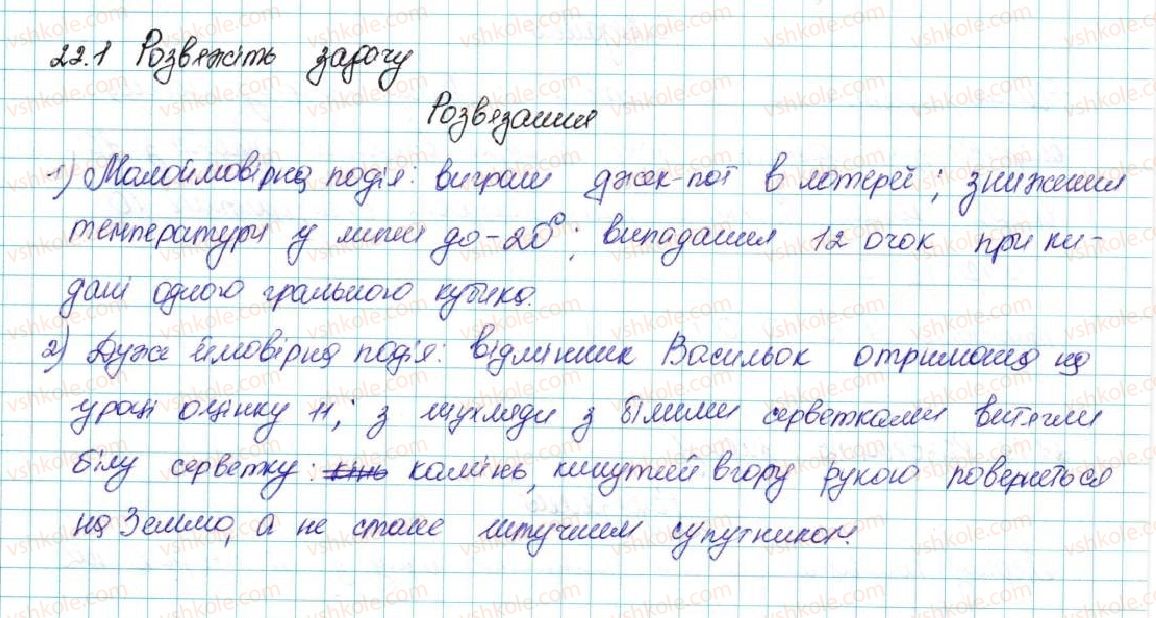 22.1 Розвяжіть задачу
Розвязання
1) Малоймовірна подія: виграш джек-пот в лотереї; зниження
температури у липні до -20°; випадання 12 очок при ки-
дані одного грального кубика.
2) Дуже ймовірна подія: відмінник Васильок отримана на
уроці оцінку 11; з шухляди з білими серветками витягли
білу серветку: кінь камінь, кинутий вгору рукою повернеться
на Землю, а не стане штучним супутником.